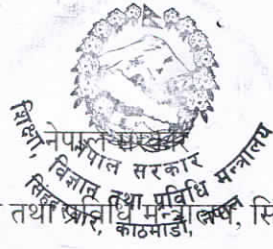 नेपाल सरकार
नेपाल सरकार
शिक्षा, विज्ञान तथा प्रविधि मन्त्रालय
सिंहदरबार, काठमाडौं, नेपाल
तथा प्रविधि मन्त्रालय, सि